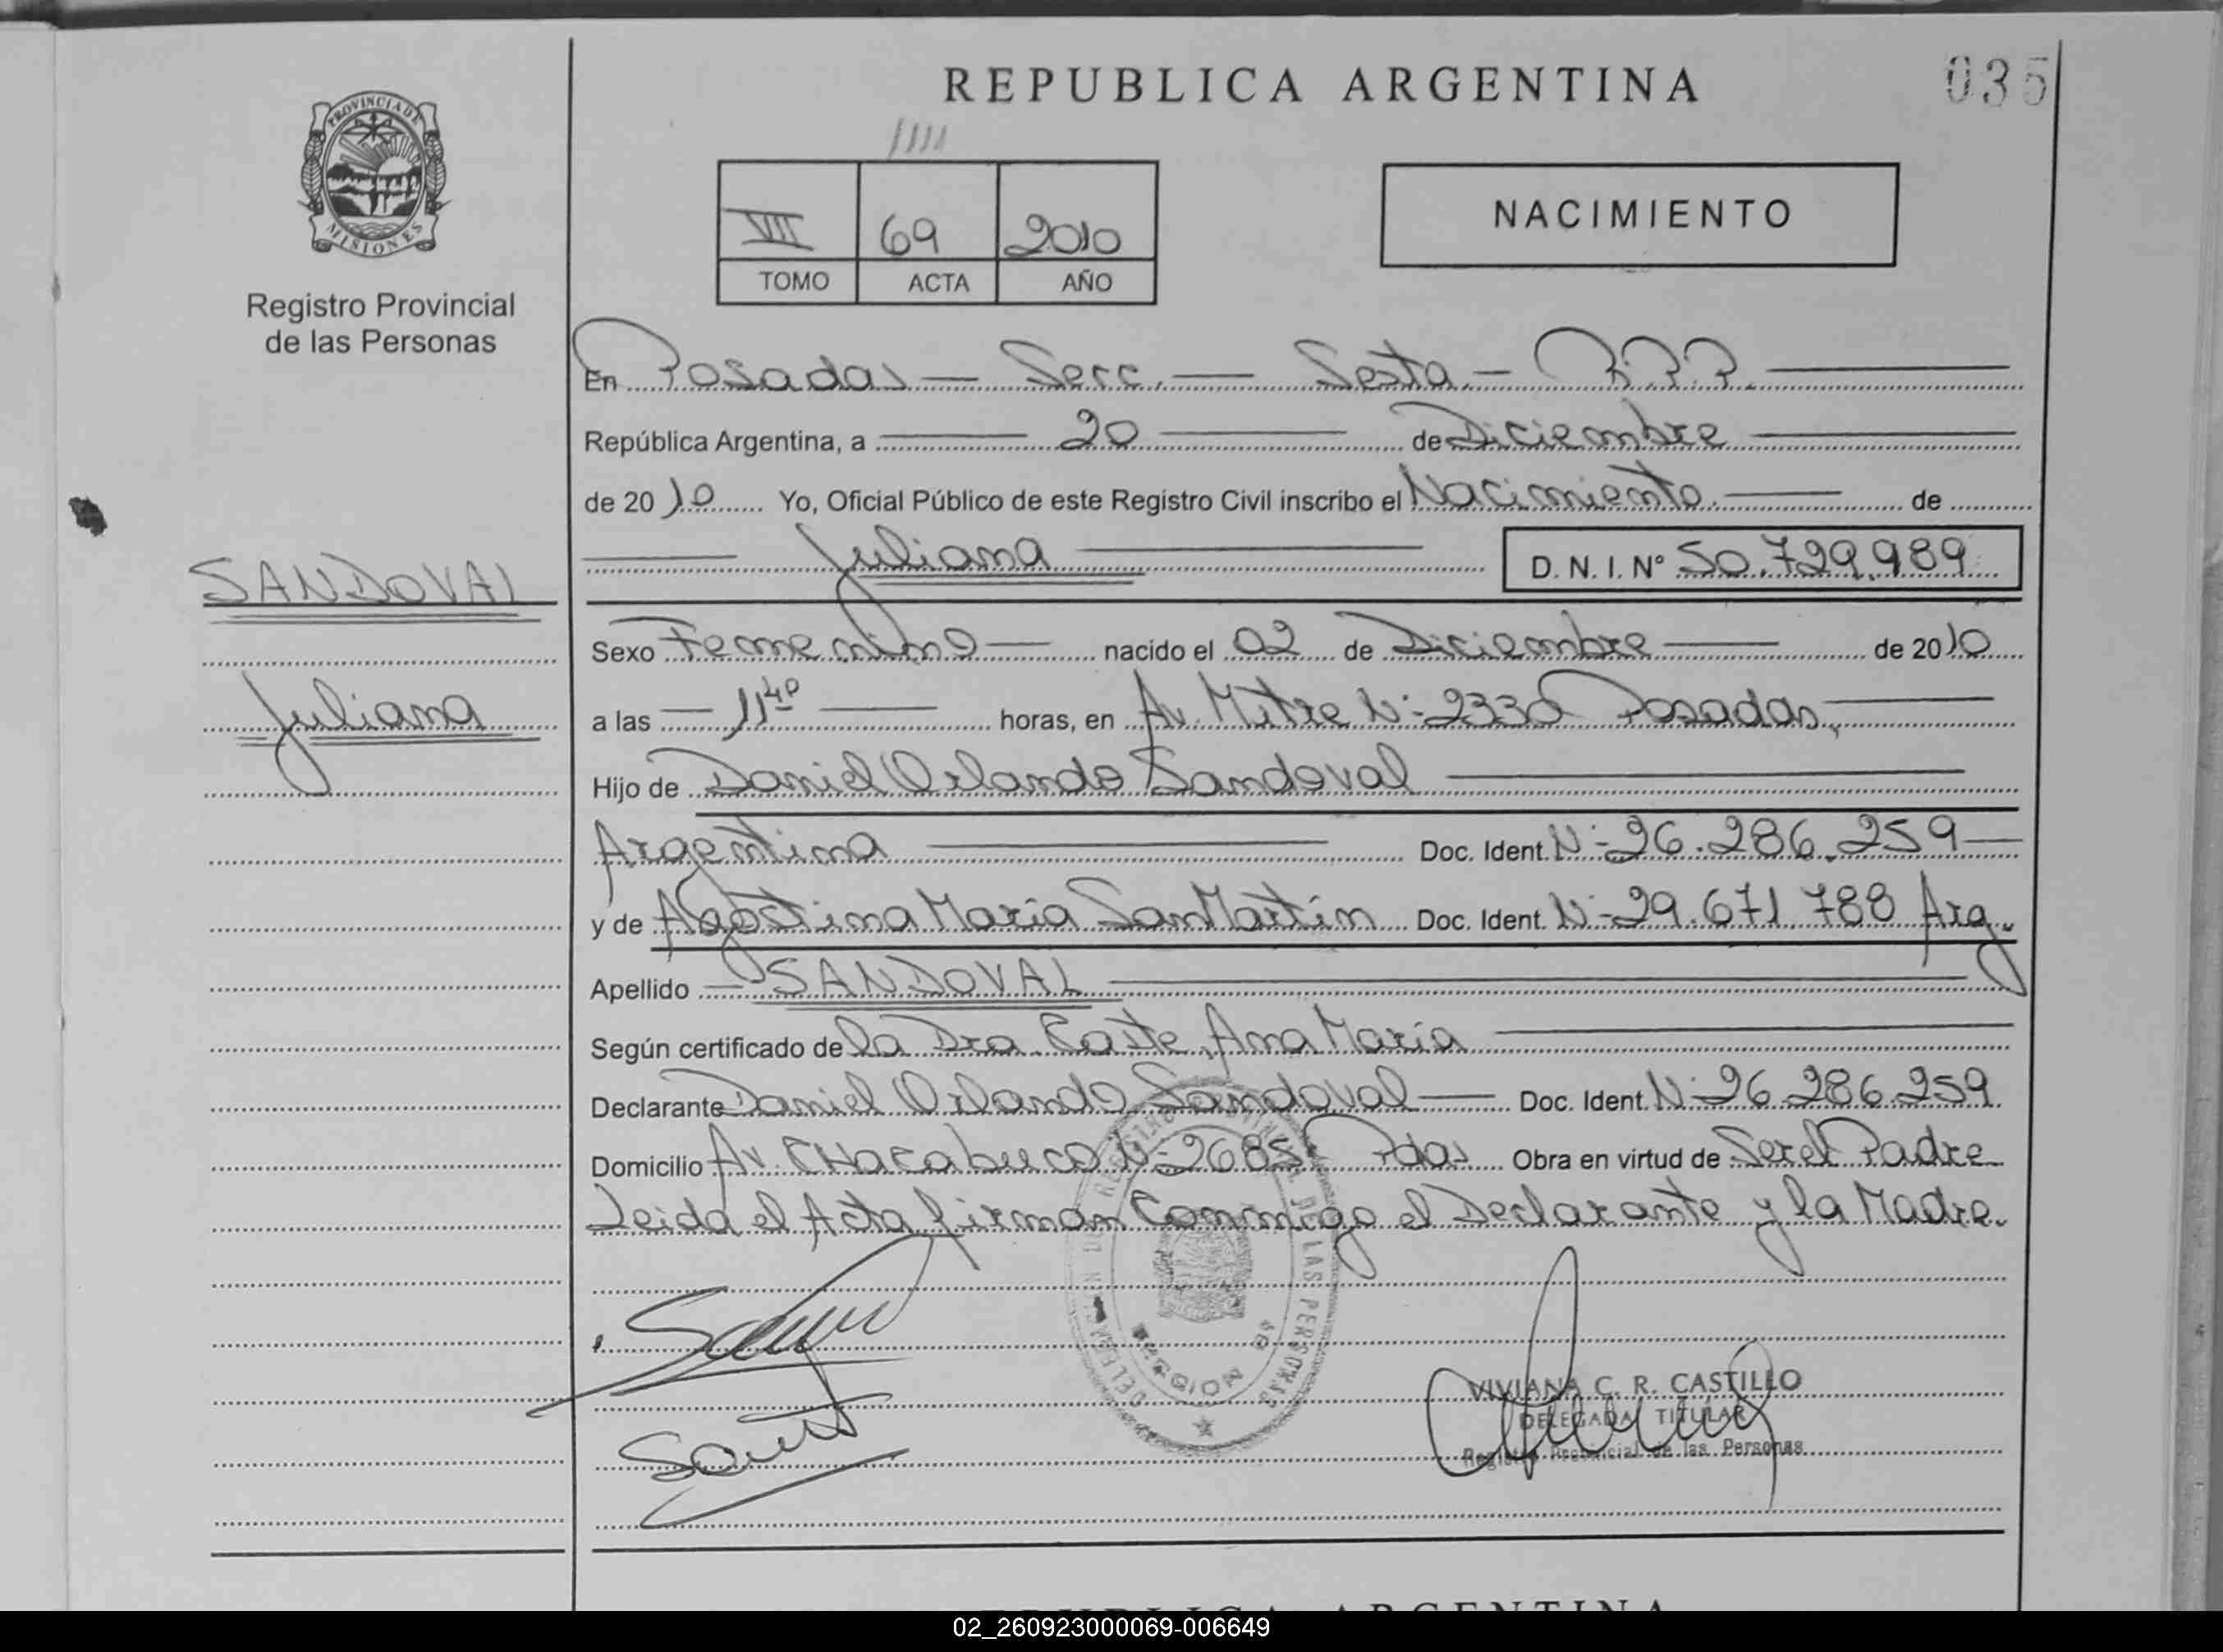 REPUBLICA ARGENTINA
035
PROVINCIA DE
MISIONES
Registro Provincial
de las Personas
VII 69 2010
TOMO ACTA AÑO
NACIMIENTO
En Posadas — Secc. — Sexta — R.P.P.
República Argentina, a 20 de Diciembre
de 2010 Yo, Oficial Público de este Registro Civil inscribo el Nacimiento. de
Juliana D. N. I. Nº 50.729.989
SANDOVAL
Juliana
Sexo Femenino nacido el 02 de Diciembre de 2010
a las 11⁴⁰ horas, en Av. Mitre Nº 2330 Posadas,
Hijo de Daniel Orlando Sandoval
Argentina Doc. Ident. Nº 26.286.259
y de Agostina Maria SanMartin Doc. Ident. Nº 29.671.788 Arg.
Apellido SANDOVAL
Según certificado de la Dra Ana Maria
Declarante Daniel Orlando Sandoval Doc. Ident. Nº 26.286.259
Domicilio Av. CHacabuco Nº 2685 Pdas Obra en virtud de Ser el Padre
Leida el Acta firman Conmigo el Declarante y la Madre.
VIVIANA C. R. CASTILLO
DELEGADA TITULAR
Registro Provincial de las Personas
REPUBLICA ARGENTINA
02_260923000069-006649